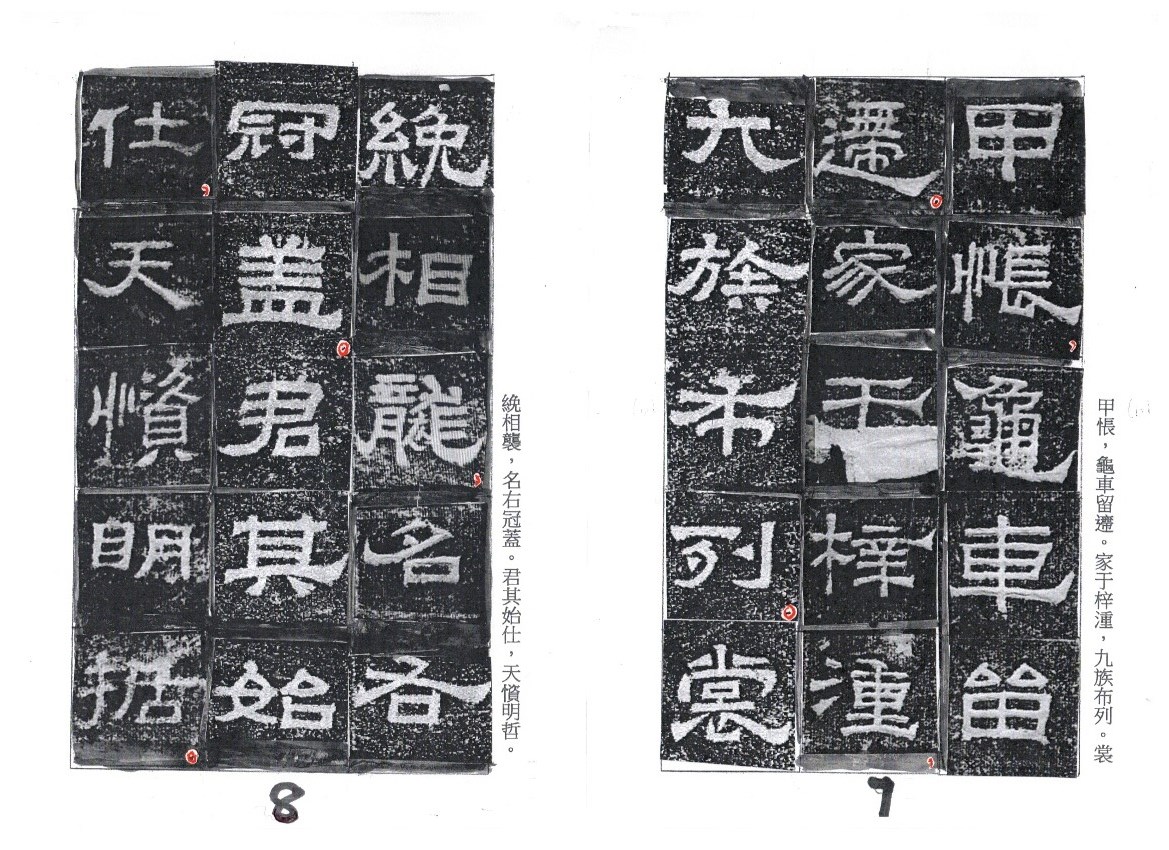 甲悵，龜車留遰。家于梓湩，九族布列。裳
甲悵，龜車畄
遰。家于梓湩，
九族布列。裳
7
絻相襲，名右冠蓋。君其始仕，天懫明哲。
絻相龍，名右
冠盖。君其始
仕，天懫明。
8